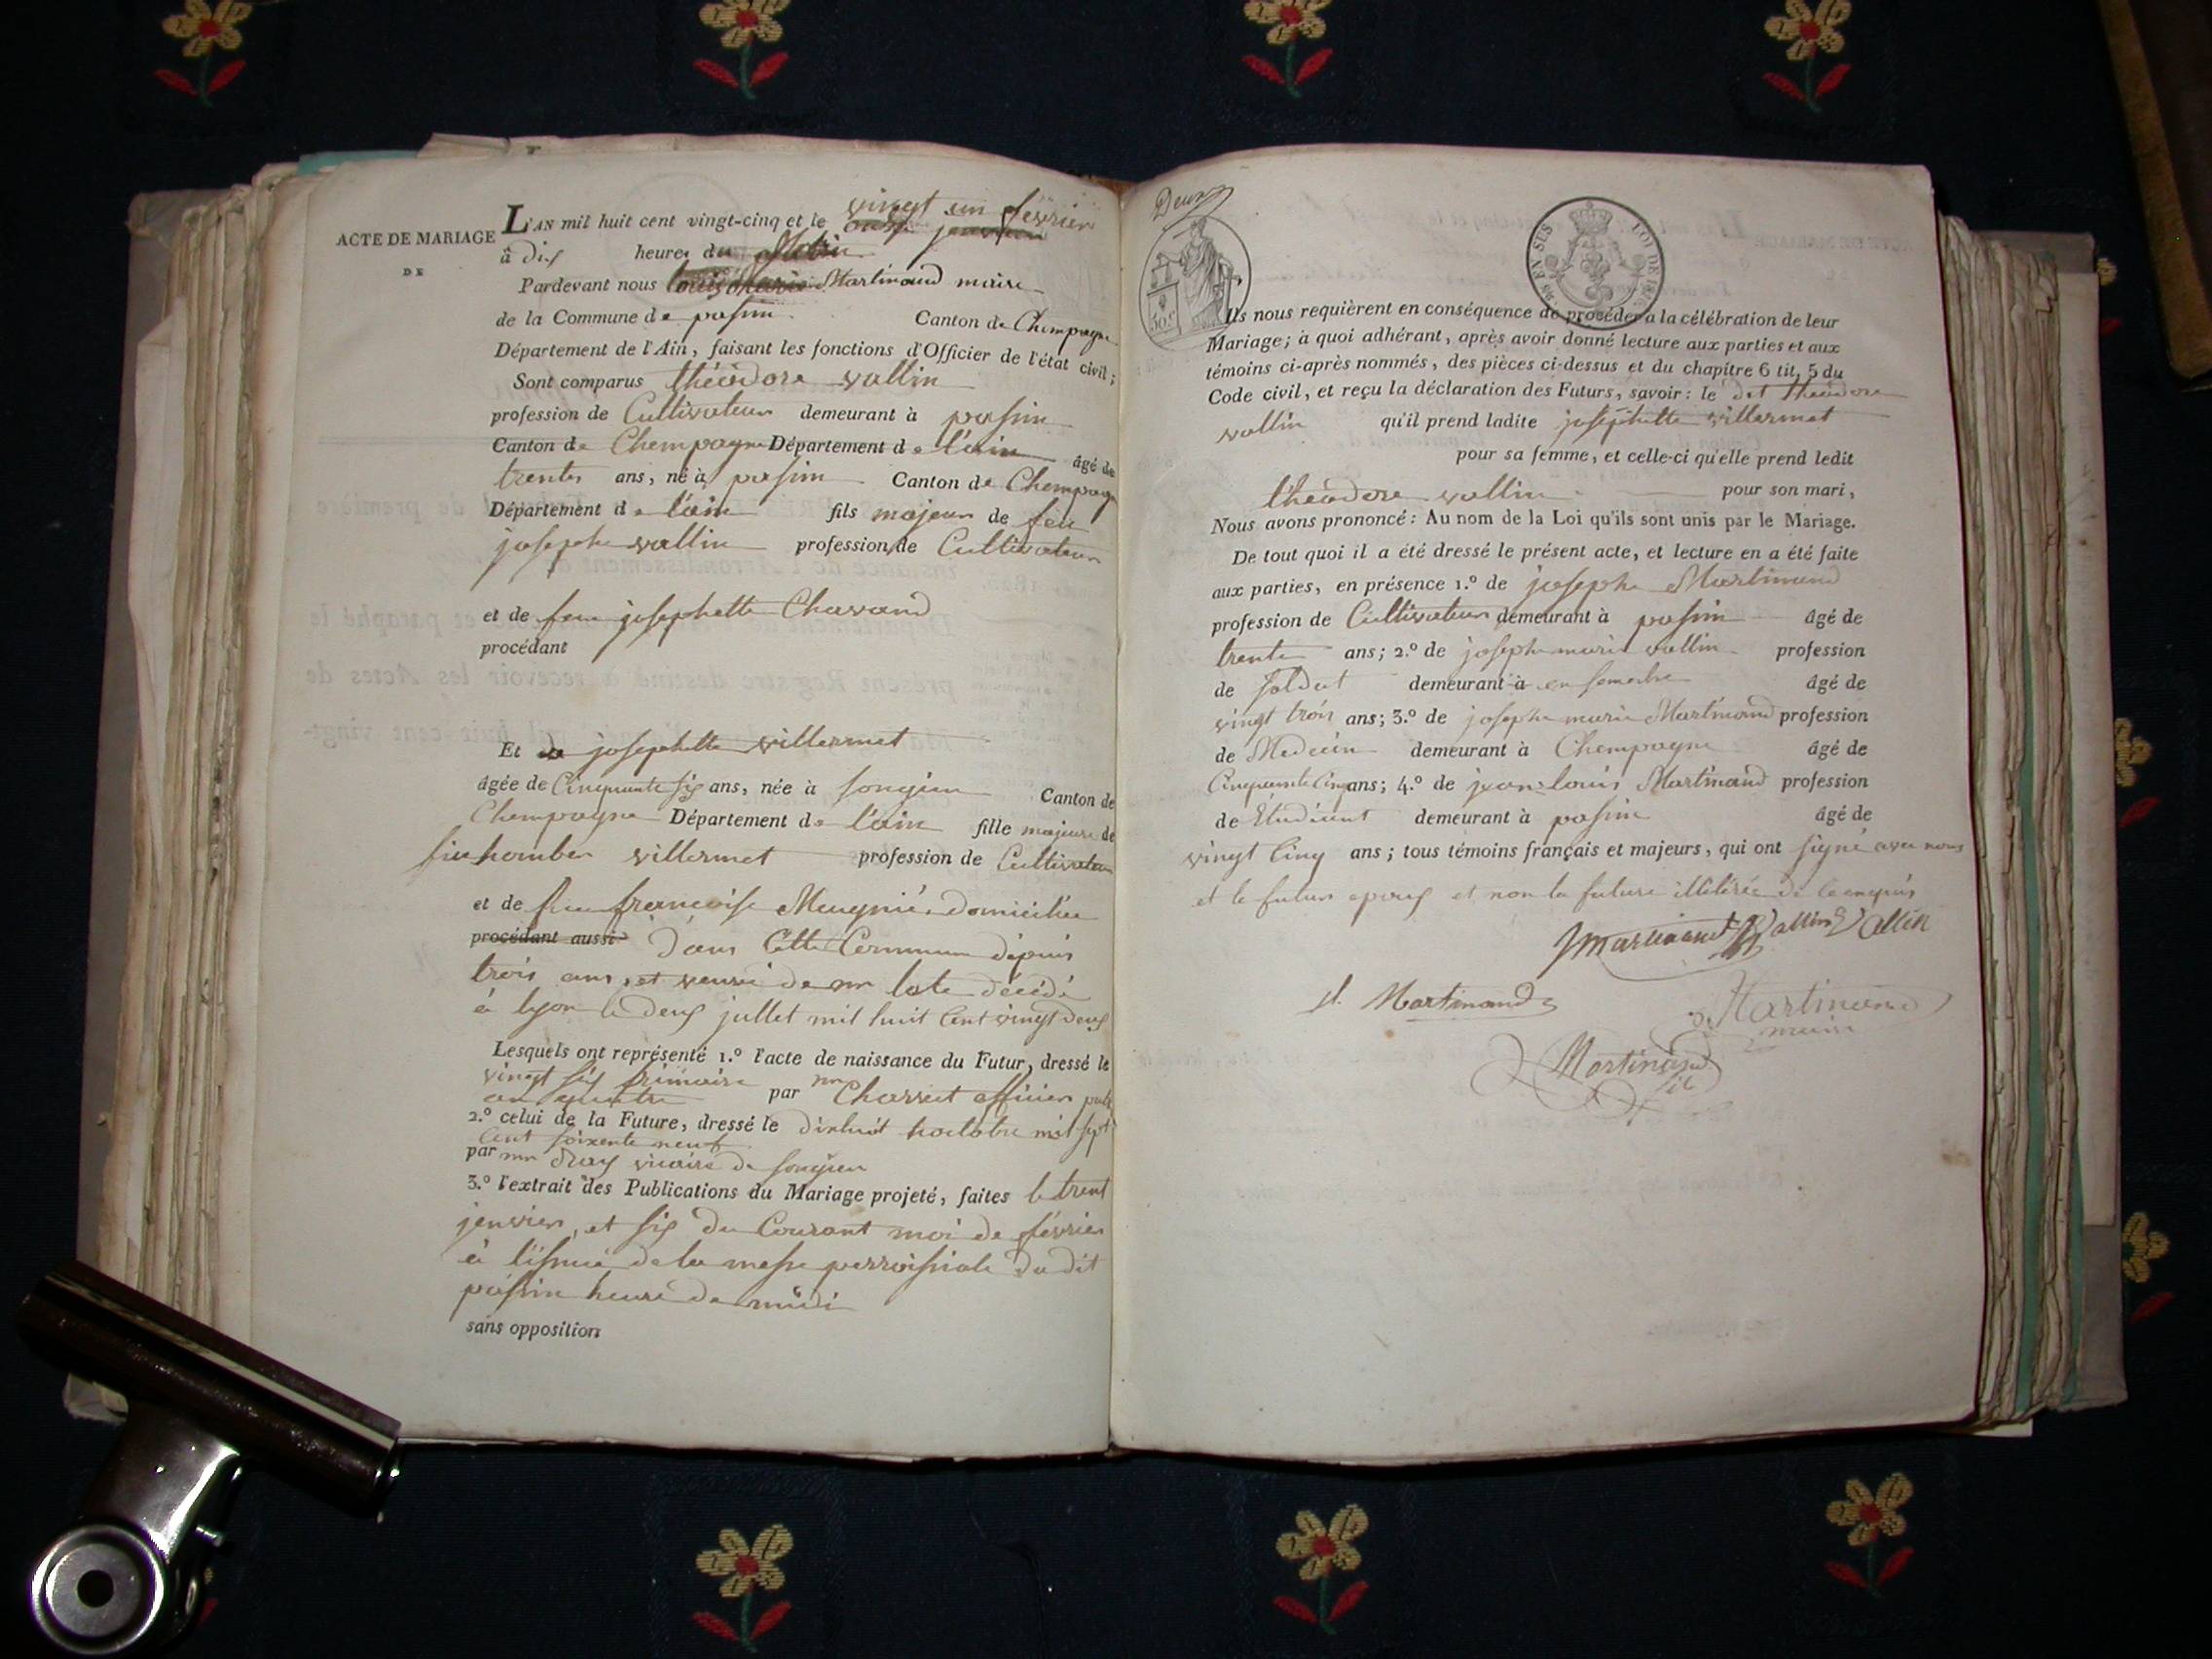 ACTE DE MARIAGE
DE
L'AN mil huit cent vingt-cinq et le vingt un février
à dix heures du Matin
Pardevant nous Martinand maire
de la Commune de passin Canton de Champagne
Département de l'Ain, faisant les fonctions d'Officier de l'état civil;
Sont comparus théodore vallin
profession de Cultivateur demeurant à passin
Canton de Champagne Département de l'ain âgé de
trente ans, né à passin Canton de Champagne
Département de l'ain fils majeur de feu
josephe vallin profession de Cultivateur
et de feue josephette Chavand
procédant
Et josephette villermet
âgée de Cinquante six ans, née à songieu Canton de
Champagne Département de l'ain fille majeure de
feu humber villermet profession de Cultivateur
et de feue francoise Meugnié domiciliée
procédant aussi dans Cette Commune depuis
trois ans, et veuve de mr late décédé
à lyon le deux jullet mil huit Cent vingt deux
Lesquels ont représenté 1.º l'acte de naissance du Futur, dressé le
vingt six frimaire
an quatre par mr Charvet officier publ
2.º celui de la Future, dressé le dixhuit hoctobre mil sept
Cent soixente neuf
par mr vicaire de songieu
3.º l'extrait des Publications du Mariage projeté, faites le trent
jenvier, et six du Courant moi de février
à l'issue de la messe perroissiale du dit
passin heure de midi
sans opposition
Deux
50 c
EN SUS
LOI DE
Ils nous requièrent en conséquence de procéder à la célébration de leur
Mariage; à quoi adhérant, après avoir donné lecture aux parties et aux
témoins ci-après nommés, des pièces ci-dessus et du chapitre 6 tit. 5 du
Code civil, et reçu la déclaration des Futurs, savoir: le dit théodore
vallin qu'il prend ladite joséphette villermet
pour sa femme, et celle-ci qu'elle prend ledit
théodore vallin pour son mari,
Nous avons prononcé: Au nom de la Loi qu'ils sont unis par le Mariage.
De tout quoi il a été dressé le présent acte, et lecture en a été faite
aux parties, en présence 1.º de josephe Martinand
profession de Cultivateur demeurant à passin âgé de
trente ans; 2.º de josephe marie vallin profession
de soldat demeurant à en semestre âgé de
vingt trois ans; 3.º de josephe marie Martinand profession
de Medecin demeurant à Champagne âgé de
Cinquante Cinq ans; 4.º de jean louis Martinand profession
de Etudient demeurant à passin âgé de
vingt Cinq ans; tous témoins français et majeurs, qui ont signé avec nous
et le futur epoux et non la future illitérée de ce enquis
J martinand Vallin Vallin
jl. Martinand Martinand
maire
Martinand